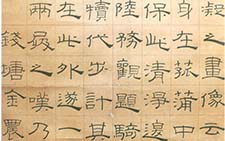 凝之畫像云
身在菰蒲中
保此清淨邊
陸務觀題騎
犢代步計其
在此外遂一
兩㝡之嘆乃
錢塘金農